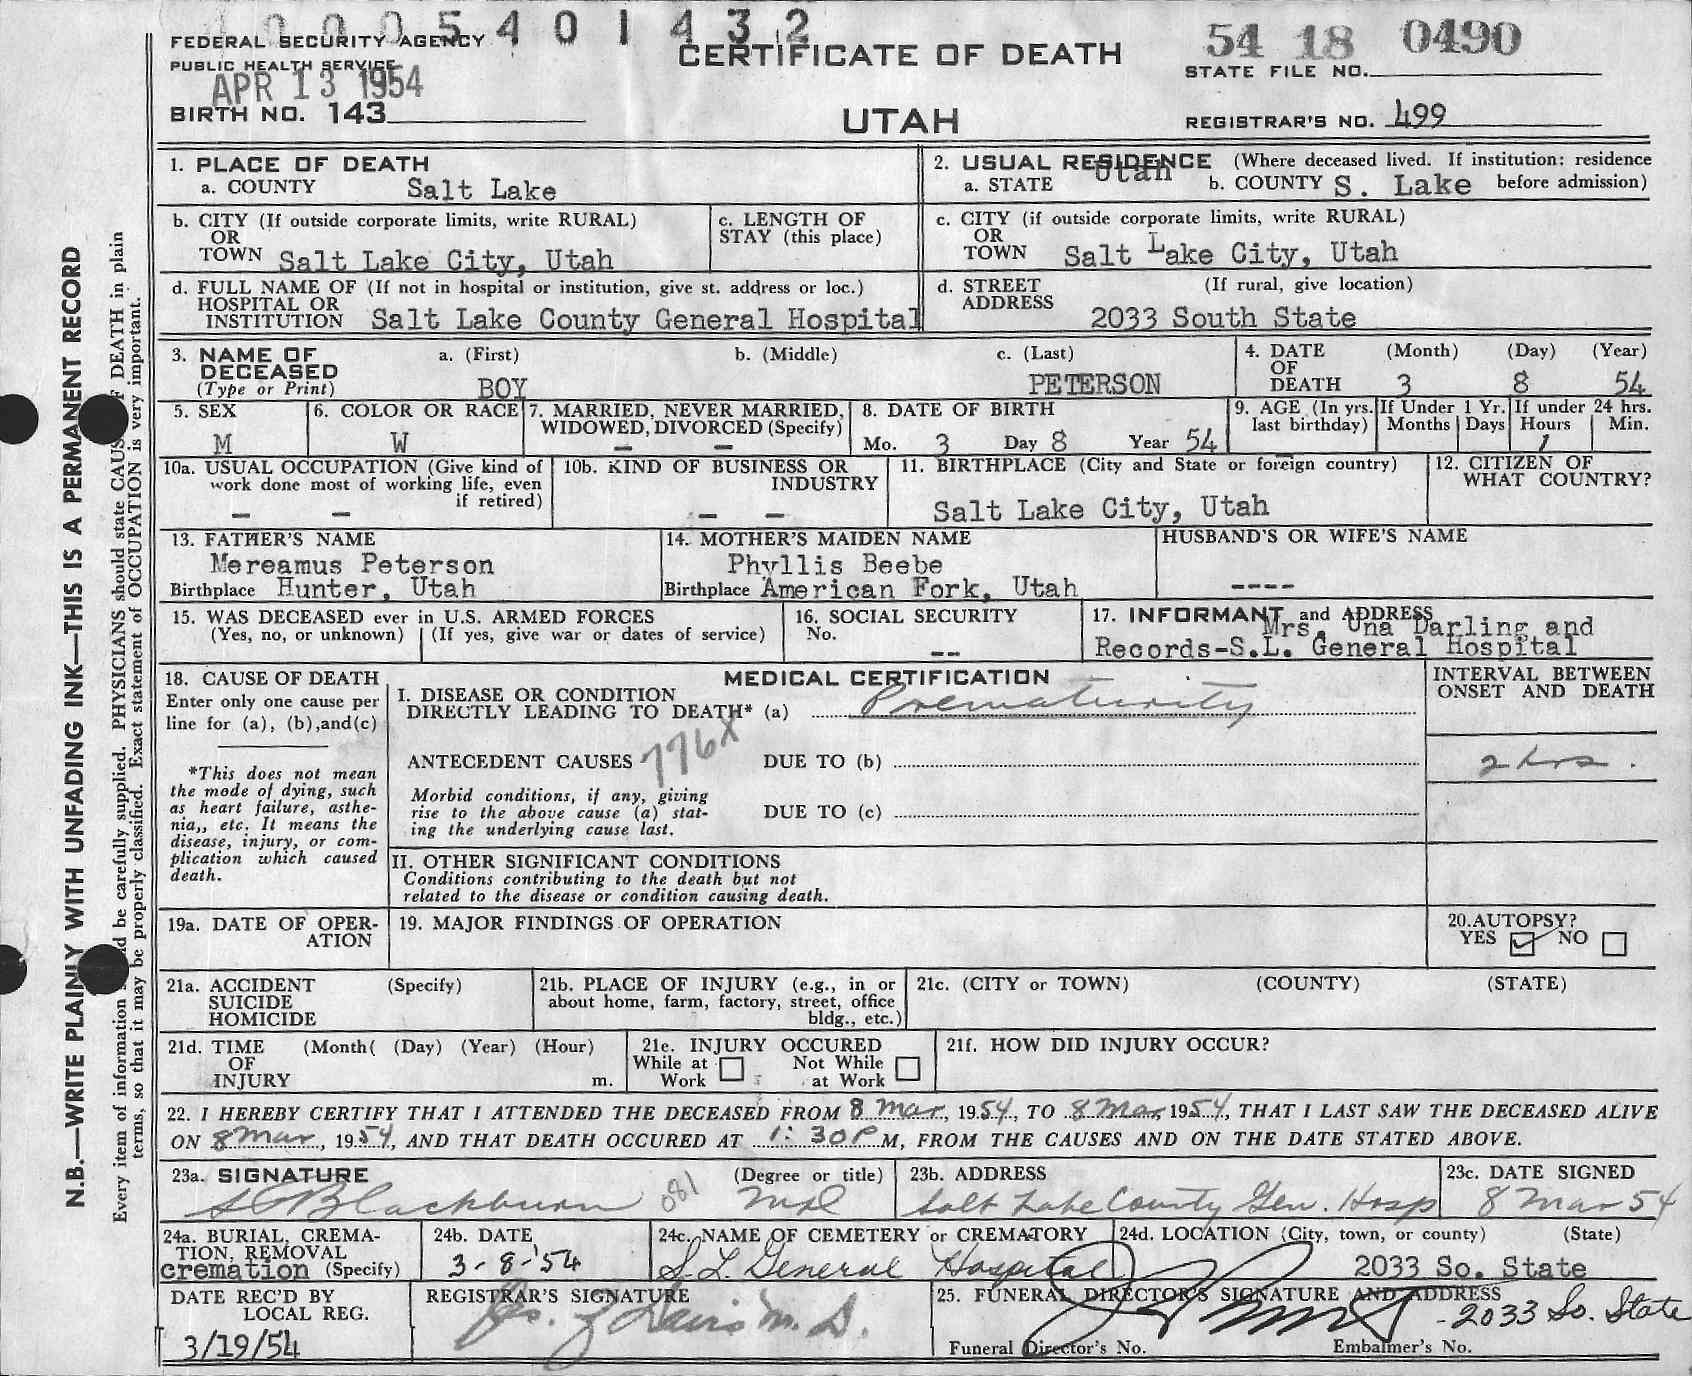 0 0 0 5 4 0 1 4 3 2
FEDERAL SECURITY AGENCY
PUBLIC HEALTH SERVICE
APR 13 1954
BIRTH NO. 143
CERTIFICATE OF DEATH
UTAH
54 18 0490
STATE FILE NO.
REGISTRAR'S NO. 499
1. PLACE OF DEATH
a. COUNTY Salt Lake
2. USUAL RESIDENCE (Where deceased lived. If institution: residence
a. STATE Utah b. COUNTY S. Lake before admission)
b. CITY (If outside corporate limits, write RURAL)
OR
TOWN Salt Lake City, Utah
c. LENGTH OF
STAY (this place)
c. CITY (if outside corporate limits, write RURAL)
OR
TOWN Salt Lake City, Utah
d. FULL NAME OF (If not in hospital or institution, give st. address or loc.)
HOSPITAL OR
INSTITUTION Salt Lake County General Hospital
d. STREET (If rural, give location)
ADDRESS
2033 South State
3. NAME OF a. (First) b. (Middle) c. (Last)
DECEASED
(Type or Print) BOY PETERSON
4. DATE (Month) (Day) (Year)
OF
DEATH 3 8 54
5. SEX
M
6. COLOR OR RACE
W
7. MARRIED, NEVER MARRIED,
WIDOWED, DIVORCED (Specify)
– –
8. DATE OF BIRTH
Mo. 3 Day 8 Year 54
9. AGE (In yrs. last birthday)
If Under 1 Yr.
Months Days
If under 24 hrs.
Hours Min.
1
10a. USUAL OCCUPATION (Give kind of
work done most of working life, even
if retired)
– –
10b. KIND OF BUSINESS OR
INDUSTRY
– –
11. BIRTHPLACE (City and State or foreign country)
Salt Lake City, Utah
12. CITIZEN OF
WHAT COUNTRY?
13. FATHER'S NAME
Mereamus Peterson
Birthplace Hunter, Utah
14. MOTHER'S MAIDEN NAME
Phyllis Beebe
Birthplace American Fork, Utah
HUSBAND'S OR WIFE'S NAME
----
15. WAS DECEASED ever in U.S. ARMED FORCES
(Yes, no, or unknown) (If yes, give war or dates of service)
16. SOCIAL SECURITY
No.
--
17. INFORMANT and ADDRESS
Mrs. Una Darling and
Records-S.L. General Hospital
18. CAUSE OF DEATH
Enter only one cause per
line for (a), (b),and(c)
*This does not mean
the mode of dying, such
as heart failure, asthe-
nia,, etc. It means the
disease, injury, or com-
plication which caused
death.
MEDICAL CERTIFICATION
I. DISEASE OR CONDITION
DIRECTLY LEADING TO DEATH* (a) Prematurity
776X
ANTECEDENT CAUSES DUE TO (b)
Morbid conditions, if any, giving
rise to the above cause (a) stat-
ing the underlying cause last.
DUE TO (c)
INTERVAL BETWEEN
ONSET AND DEATH
2 hrs.
II. OTHER SIGNIFICANT CONDITIONS
Conditions contributing to the death but not
related to the disease or condition causing death.
19a. DATE OF OPER-
ATION
19. MAJOR FINDINGS OF OPERATION
20.AUTOPSY?
YES NO
21a. ACCIDENT (Specify)
SUICIDE
HOMICIDE
21b. PLACE OF INJURY (e.g., in or
about home, farm, factory, street, office
bldg., etc.)
21c. (CITY or TOWN) (COUNTY) (STATE)
21d. TIME (Month( (Day) (Year) (Hour)
OF
INJURY m.
21e. INJURY OCCURED
While at Work Not While at Work
21f. HOW DID INJURY OCCUR?
22. I HEREBY CERTIFY THAT I ATTENDED THE DECEASED FROM 8 Mar, 1954, TO 8 Mar, 1954, THAT I LAST SAW THE DECEASED ALIVE
ON 8 Mar, 1954, AND THAT DEATH OCCURED AT 1:30 P M, FROM THE CAUSES AND ON THE DATE STATED ABOVE.
23a. SIGNATURE (Degree or title)
Blackburn 081 MD
23b. ADDRESS
Salt Lake County Gen. Hosp
23c. DATE SIGNED
8 Mar 54
24a. BURIAL, CREMA-
TION, REMOVAL
cremation (Specify)
24b. DATE
3-8-'54
24c. NAME OF CEMETERY or CREMATORY
S. L. General Hospital
24d. LOCATION (City, town, or county) (State)
2033 So. State
DATE REC'D BY
LOCAL REG.
3/19/54
REGISTRAR'S SIGNATURE
Davis M. D.
25. FUNERAL DIRECTOR'S SIGNATURE AND ADDRESS
-2033 So. State
Funeral Director's No. Embalmer's No.
N.B.—WRITE PLAINLY WITH UNFADING INK—THIS IS A PERMANENT RECORD
Every item of information be carefully supplied. PHYSICIANS should state CAUS F DEATH in plain
terms, so that it may be properly classified. Exact statement of OCCUPATION is very important.